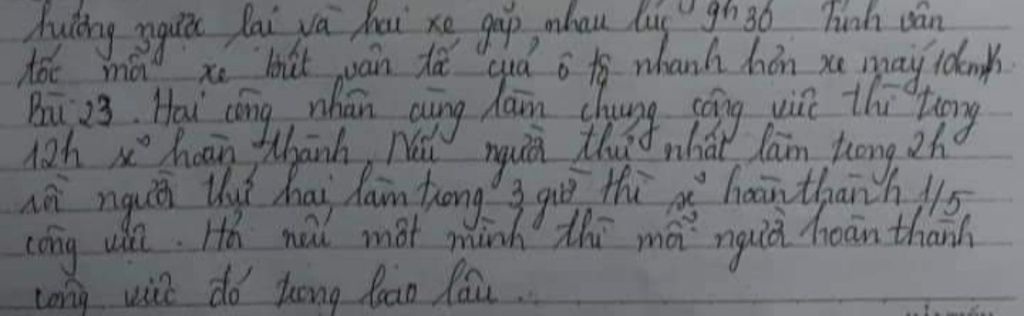 hướng ngược lại và hai xe gặp nhau lúc 9h30 Tính vân
tốc mỗi xe biết vân tốc quả ô tô nhanh hơn xe máy 10km/h
Bài 23. Hai công nhân cùng làm chung công việc thì trong
12h sẽ hoàn thành, Nếu người thứ nhất làm trong 2h
rồi người thứ hai làm trong 3 giờ thì sẽ hoàn thành 1/5
công việc. Hỏi nếu một mình thì mỗi người hoàn thành
công việc đó trong bao lâu..